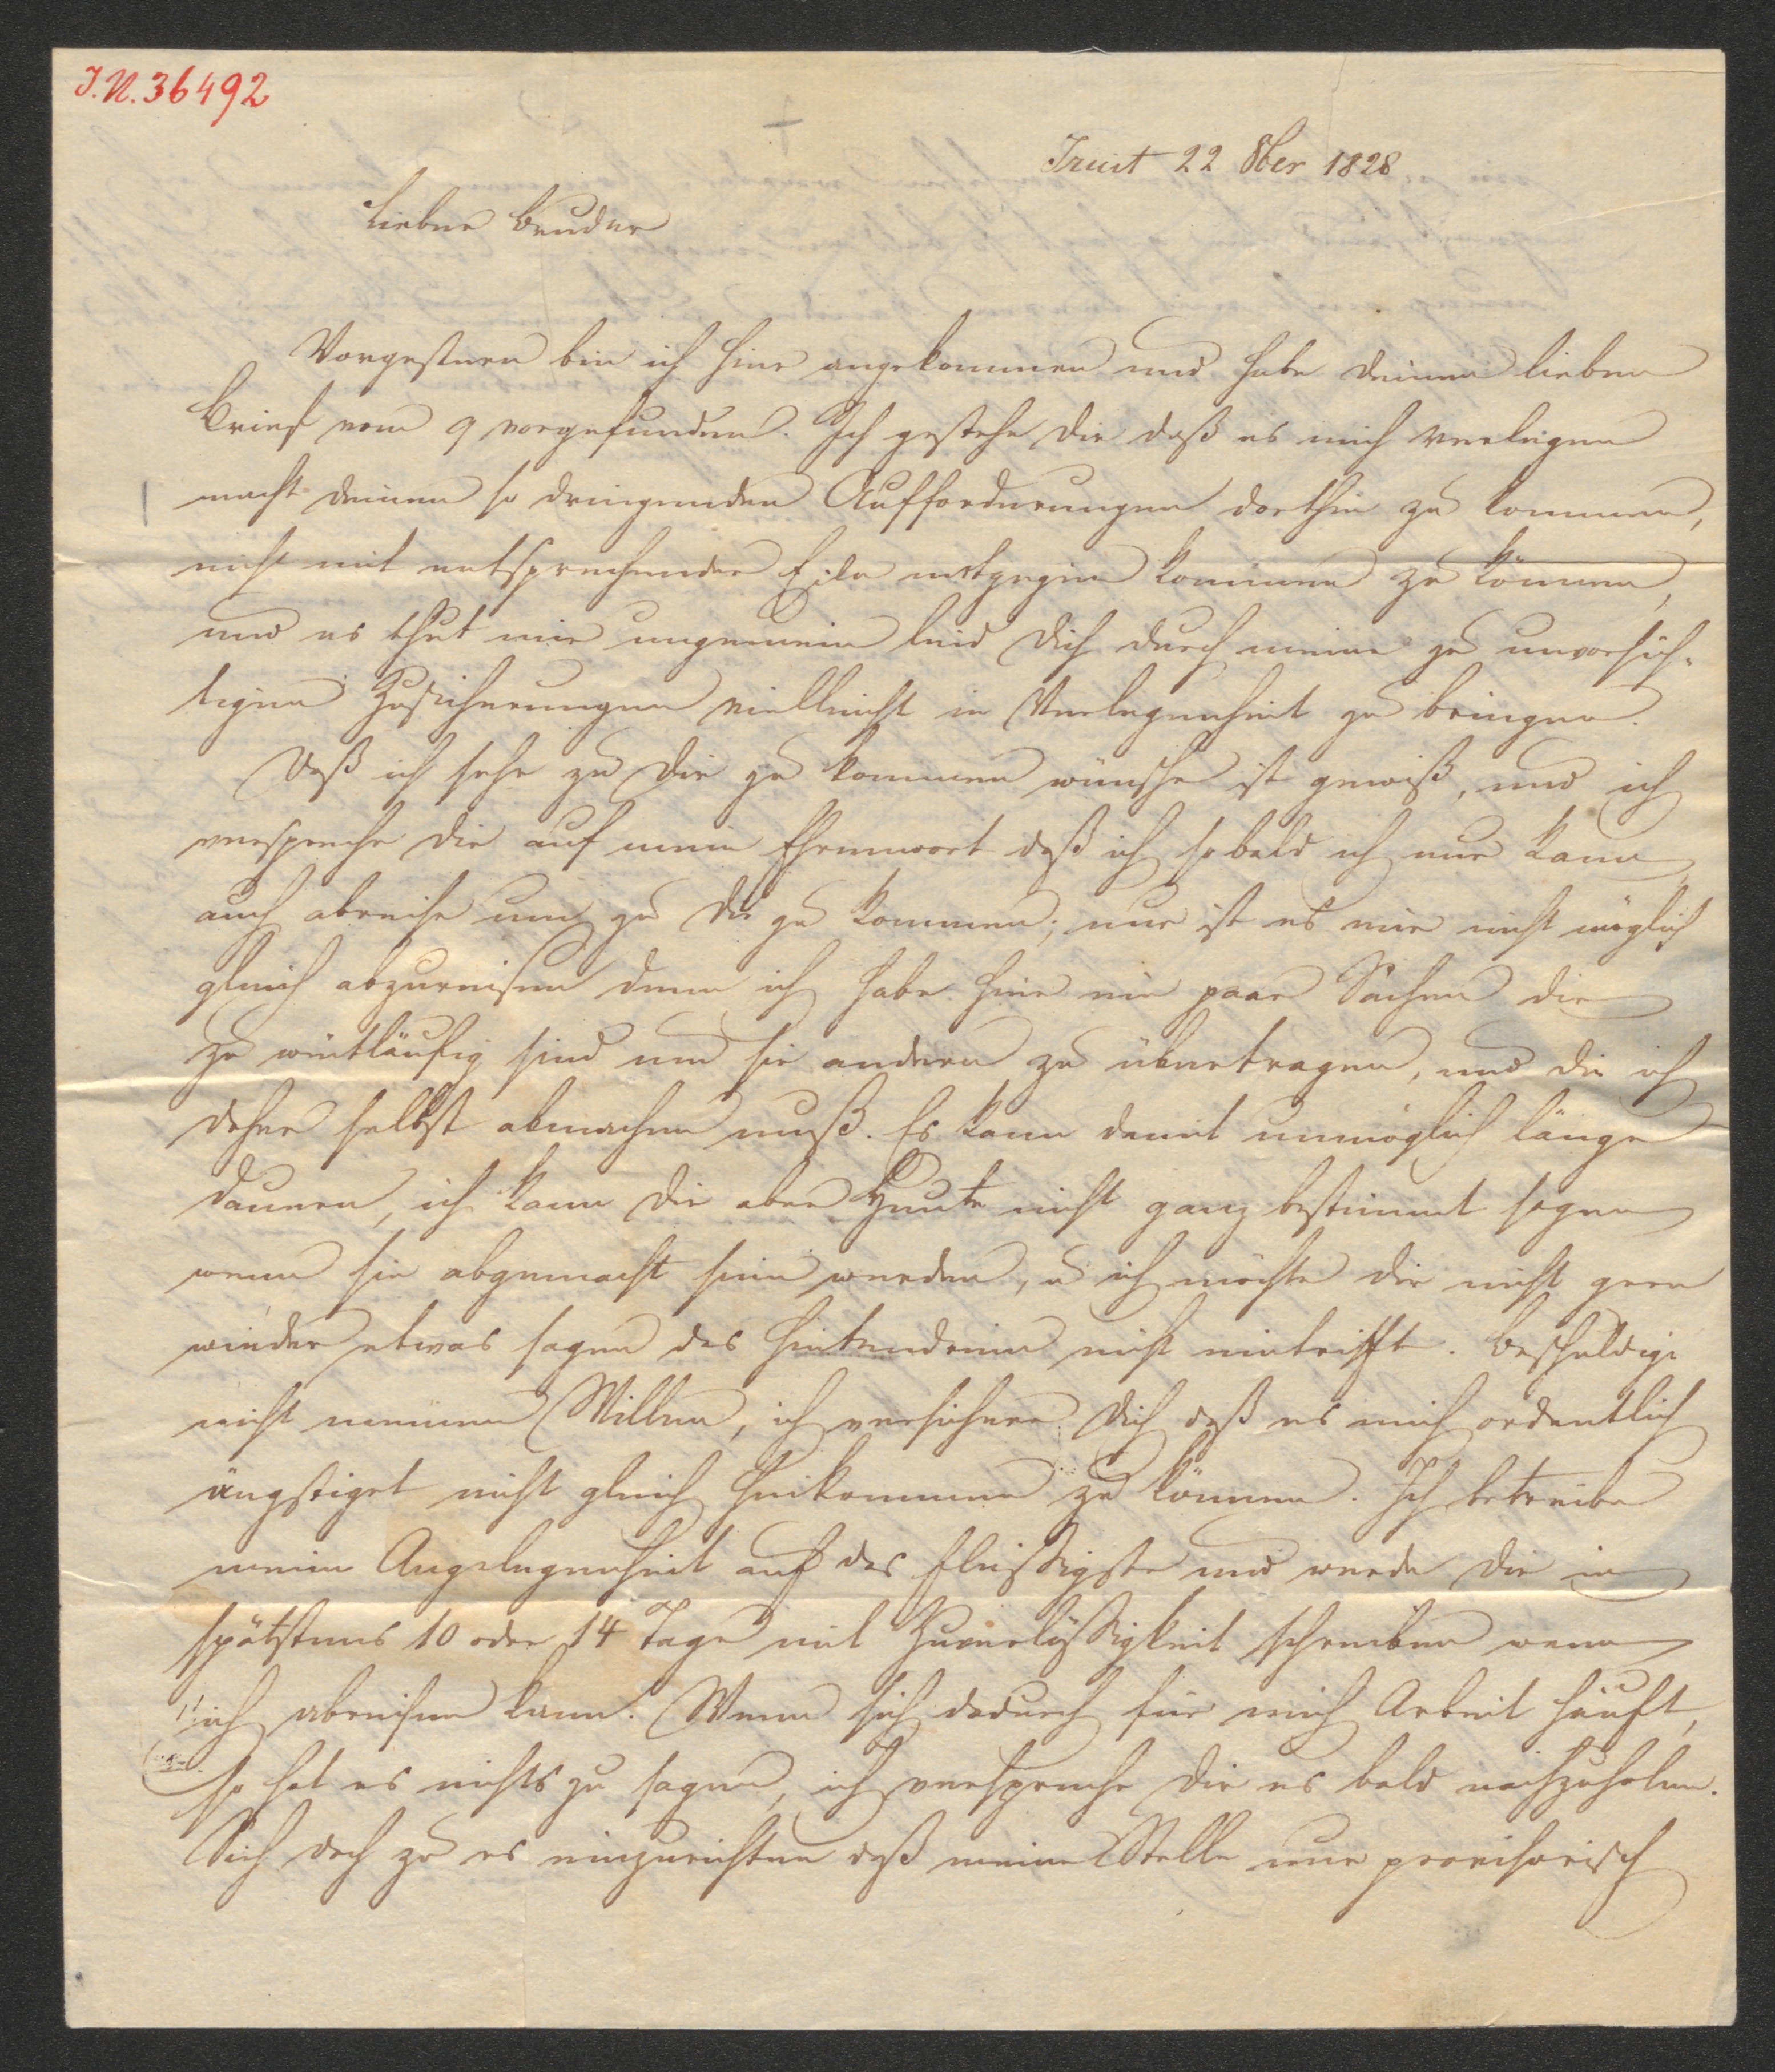 J.N. 36492
Triest 22 8ber 1828
Lieber Bruder
Vorgestern bin ich hier angekommen und habe deinen lieben
Brief vom 9 vorgefunden. Ich gestehe dir daß es mich verlegen
macht deinen so dringenden Aufforderungen dorthin zu kommen,
nicht mit entsprechender Eile entgegen kommen zu können,
und es thut mir ungemein leid dich durch meine zu unvorsich-
tigen Zusicherungen vielleicht in Verlegenheit zu bringen.
Daß ich sehr zu dir zu kommen wünsche ist gewiß, und ich
verspreche dir auf mein Ehrenwort daß ich sobald ich nur kann
auch abreise um zu dir zu kommen; nur ist es mir nicht möglich
gleich abzureisen denn ich habe hier ein paar Sachen die
zu weitläufig sind um sie andern zu übertragen, und die ich
daher selbst abmachen muß. Es kann damit unmöglich lange
dauern, ich kann dir aber Heute nicht ganz bestimmt sagen
wenn sie abgemacht sein werden, u ich möchte dir nicht gern
wieder etwas sagen das hintendrein nicht eintrifft. Beschuldige
nicht meinen Willen, ich versichere dich daß es mich ordentlich
ängstiget nicht gleich hinkommen zu können. Ich betreibe
meine Angelegenheit auf das fleißigste und werde dir in
spätstens 10 oder 14 Tage mit Zuverläßigkeit schreiben wenn
ich abreisen kann. Wenn sich dadurch für mich Arbeit häuft,
so hat es nichts zu sagen, ich verspreche dir es bald nachzuholen.
Sieh doch zu es einzurichten daß meine Stelle nur provisorisch